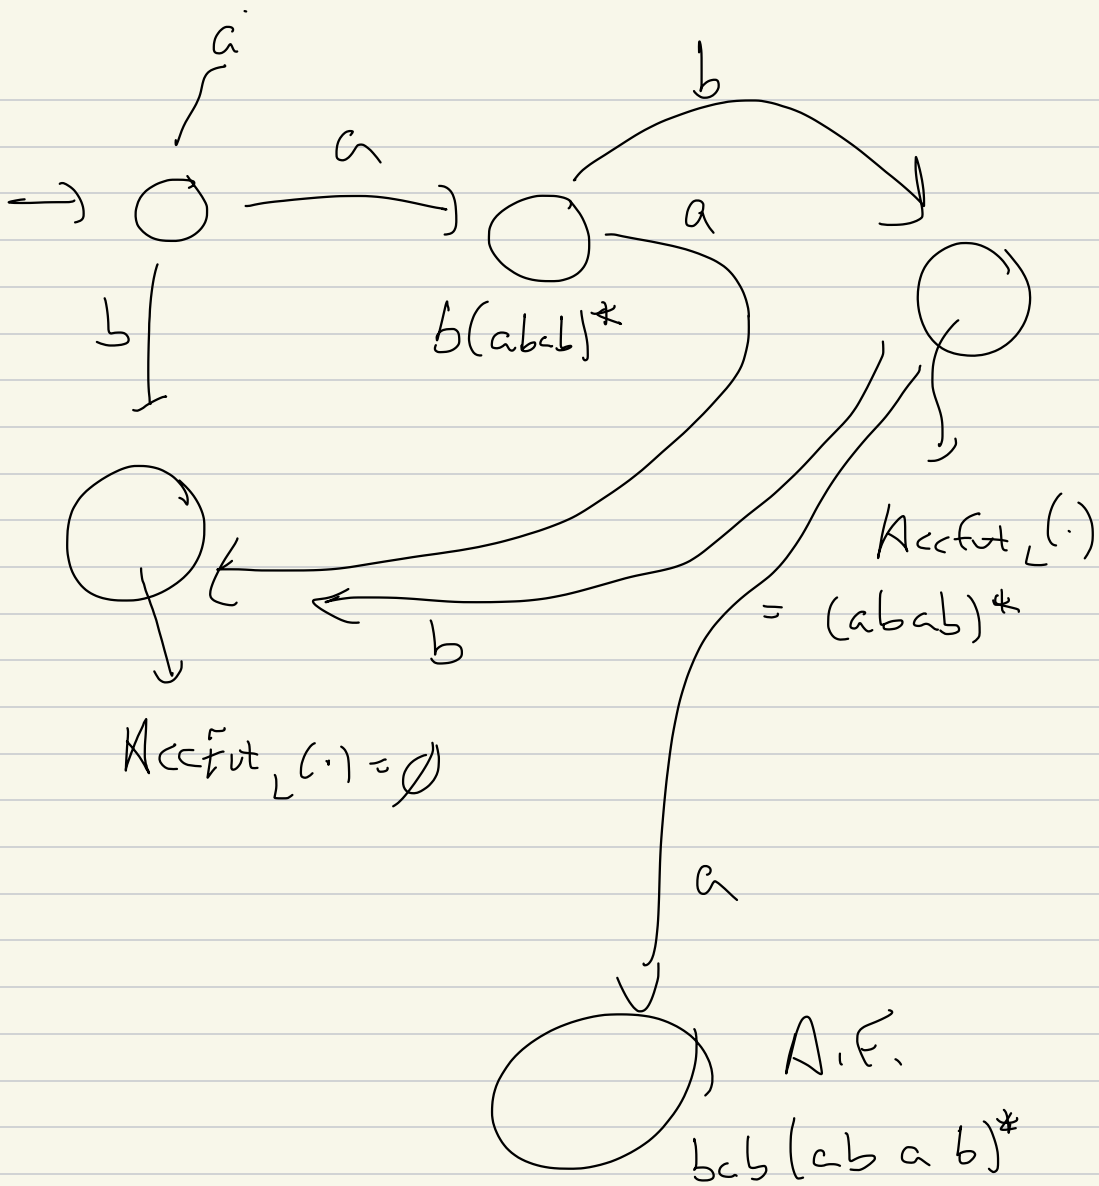 a
b
a
a
b
b(abab)*
AccFut_L(·)
= (abab)*
b
AccFut_L(·) = ∅
a
A.F.
bab(abab)*